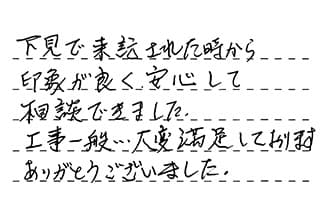 下見で来訪された時から
印象が良く、安心して
相談できました。
工事一般…大変満足しております
ありがとうございました。